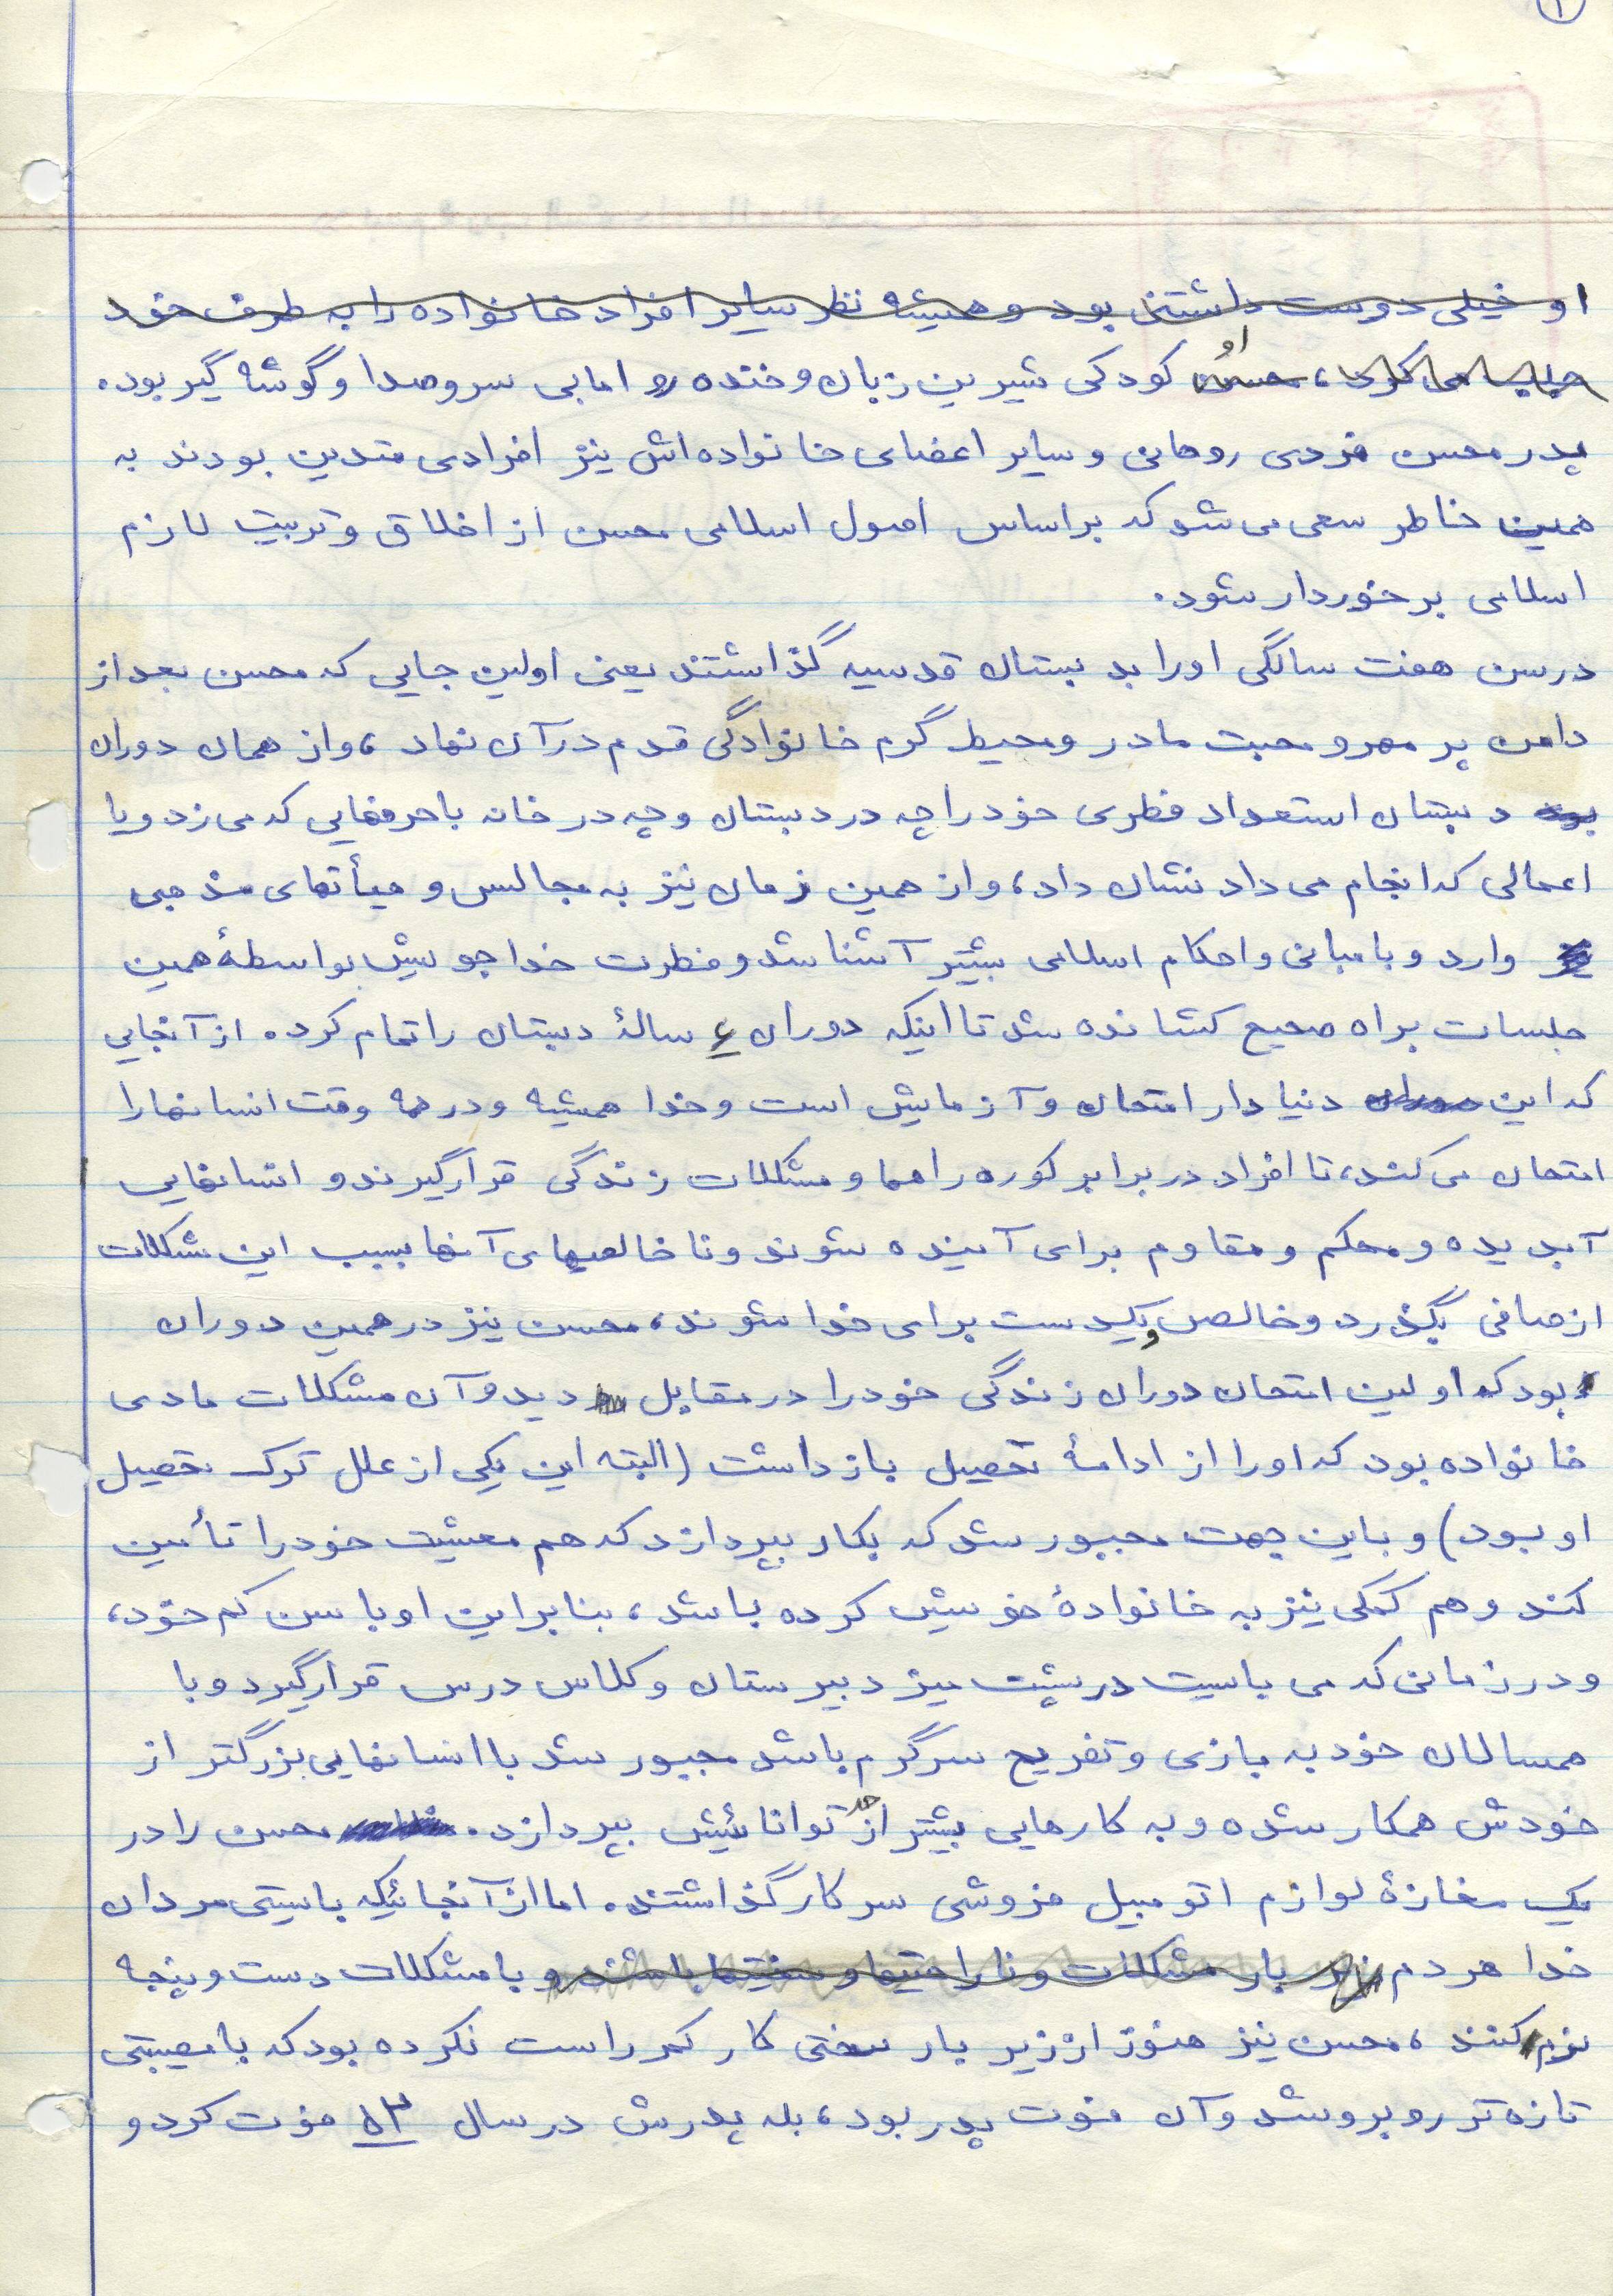 ۱
او خیلی دوست داشتنی بود و همیشه نظر سایر افراد خانواده را به طرف خود
جلب می کرد، محسن او کودکی شیرین زبان و خنده رو اما بی سر و صدا و گوشه گیر بود.
پدر محسن فردی روحانی و سایر اعضای خانواده اش نیز افرادی متدین بودند به
همین خاطر سعی می شد که براساس اصول اسلامی محسن از اخلاق و تربیت لازم
اسلامی برخوردار شود.
در سن هفت سالگی او را بد بستان قدسیه گذاشتند یعنی اولین جایی که محسن بعد از
دامن پر مهر و محبت مادر و محیط گرم خانوادگی قدم در آن نهاد، و از همان دوران
دبستان استعداد فطری خود را چه در دبستان و چه در خانه با حرفهایی که می زد و یا
اعمالی که انجام می داد نشان داد، و از همین زمان نیز به مجالس و هیأتهای مذهبی
وارد و با مبانی و احکام اسلامی بیشتر آشنا شد و فطرت خدا جویش بواسطهٔ همین
جلسات براه صحیح کشانده شد تا اینکه دوران ۶ سالهٔ دبستان را تمام کرد. از آنجایی
که این دنیا دار امتحان و آزمایش است و خدا همیشه و در همه وقت انسانها را
امتحان می کند، تا افراد در برابر کوره راهها و مشکلات زندگی قرار گیرند و انسانهایی
آبدیده و محکم و مقاوم برای آینده شوند و ناخالصیهای آنها بسبب این مشکلات
از صافی بگذرد و خالص و یکدست برای خدا شوند، محسن نیز در همین دوران
بود که اولین امتحان دوران زندگی خود را در مقابل دید و آن مشکلات مادی
خانواده بود که او را از ادامهٔ تحصیل بازداشت (البته این یکی از علل ترک تحصیل
او بود) و باین جهت مجبور شد که بکار بپردازد که هم معیشت خود را تأمین
کند و هم کمکی نیز به خانوادهٔ خویش کرده باشد، بنابراین او با سن کم خود،
و در زمانی که می بایست در پشت میز دبیرستان و کلاس درس قرار گیرد و با
همسالان خود به بازی و تفریح سرگرم باشد مجبور شد با انسانهایی بزرگتر از
خودش همکار شده و به کارهایی بیشتر از حد توانائیش بپردازد. محسن را در
یک مغازهٔ لوازم اتومبیل فروشی سر کار گذاشتند. اما از آنجائیکه بایستی مردان
خدا هر دم زیر بار مشکلات و ناراحتیها و سختیها باشند و با مشکلات دست و پنجه
نرم کنند، محسن نیز هنوز از زیر بار سختی کار کمر راست نکرده بود که با مصیبتی
تازه تر روبرو شد و آن فوت پدر بود، بله پدرش در سال ۵۳ فوت کرد و